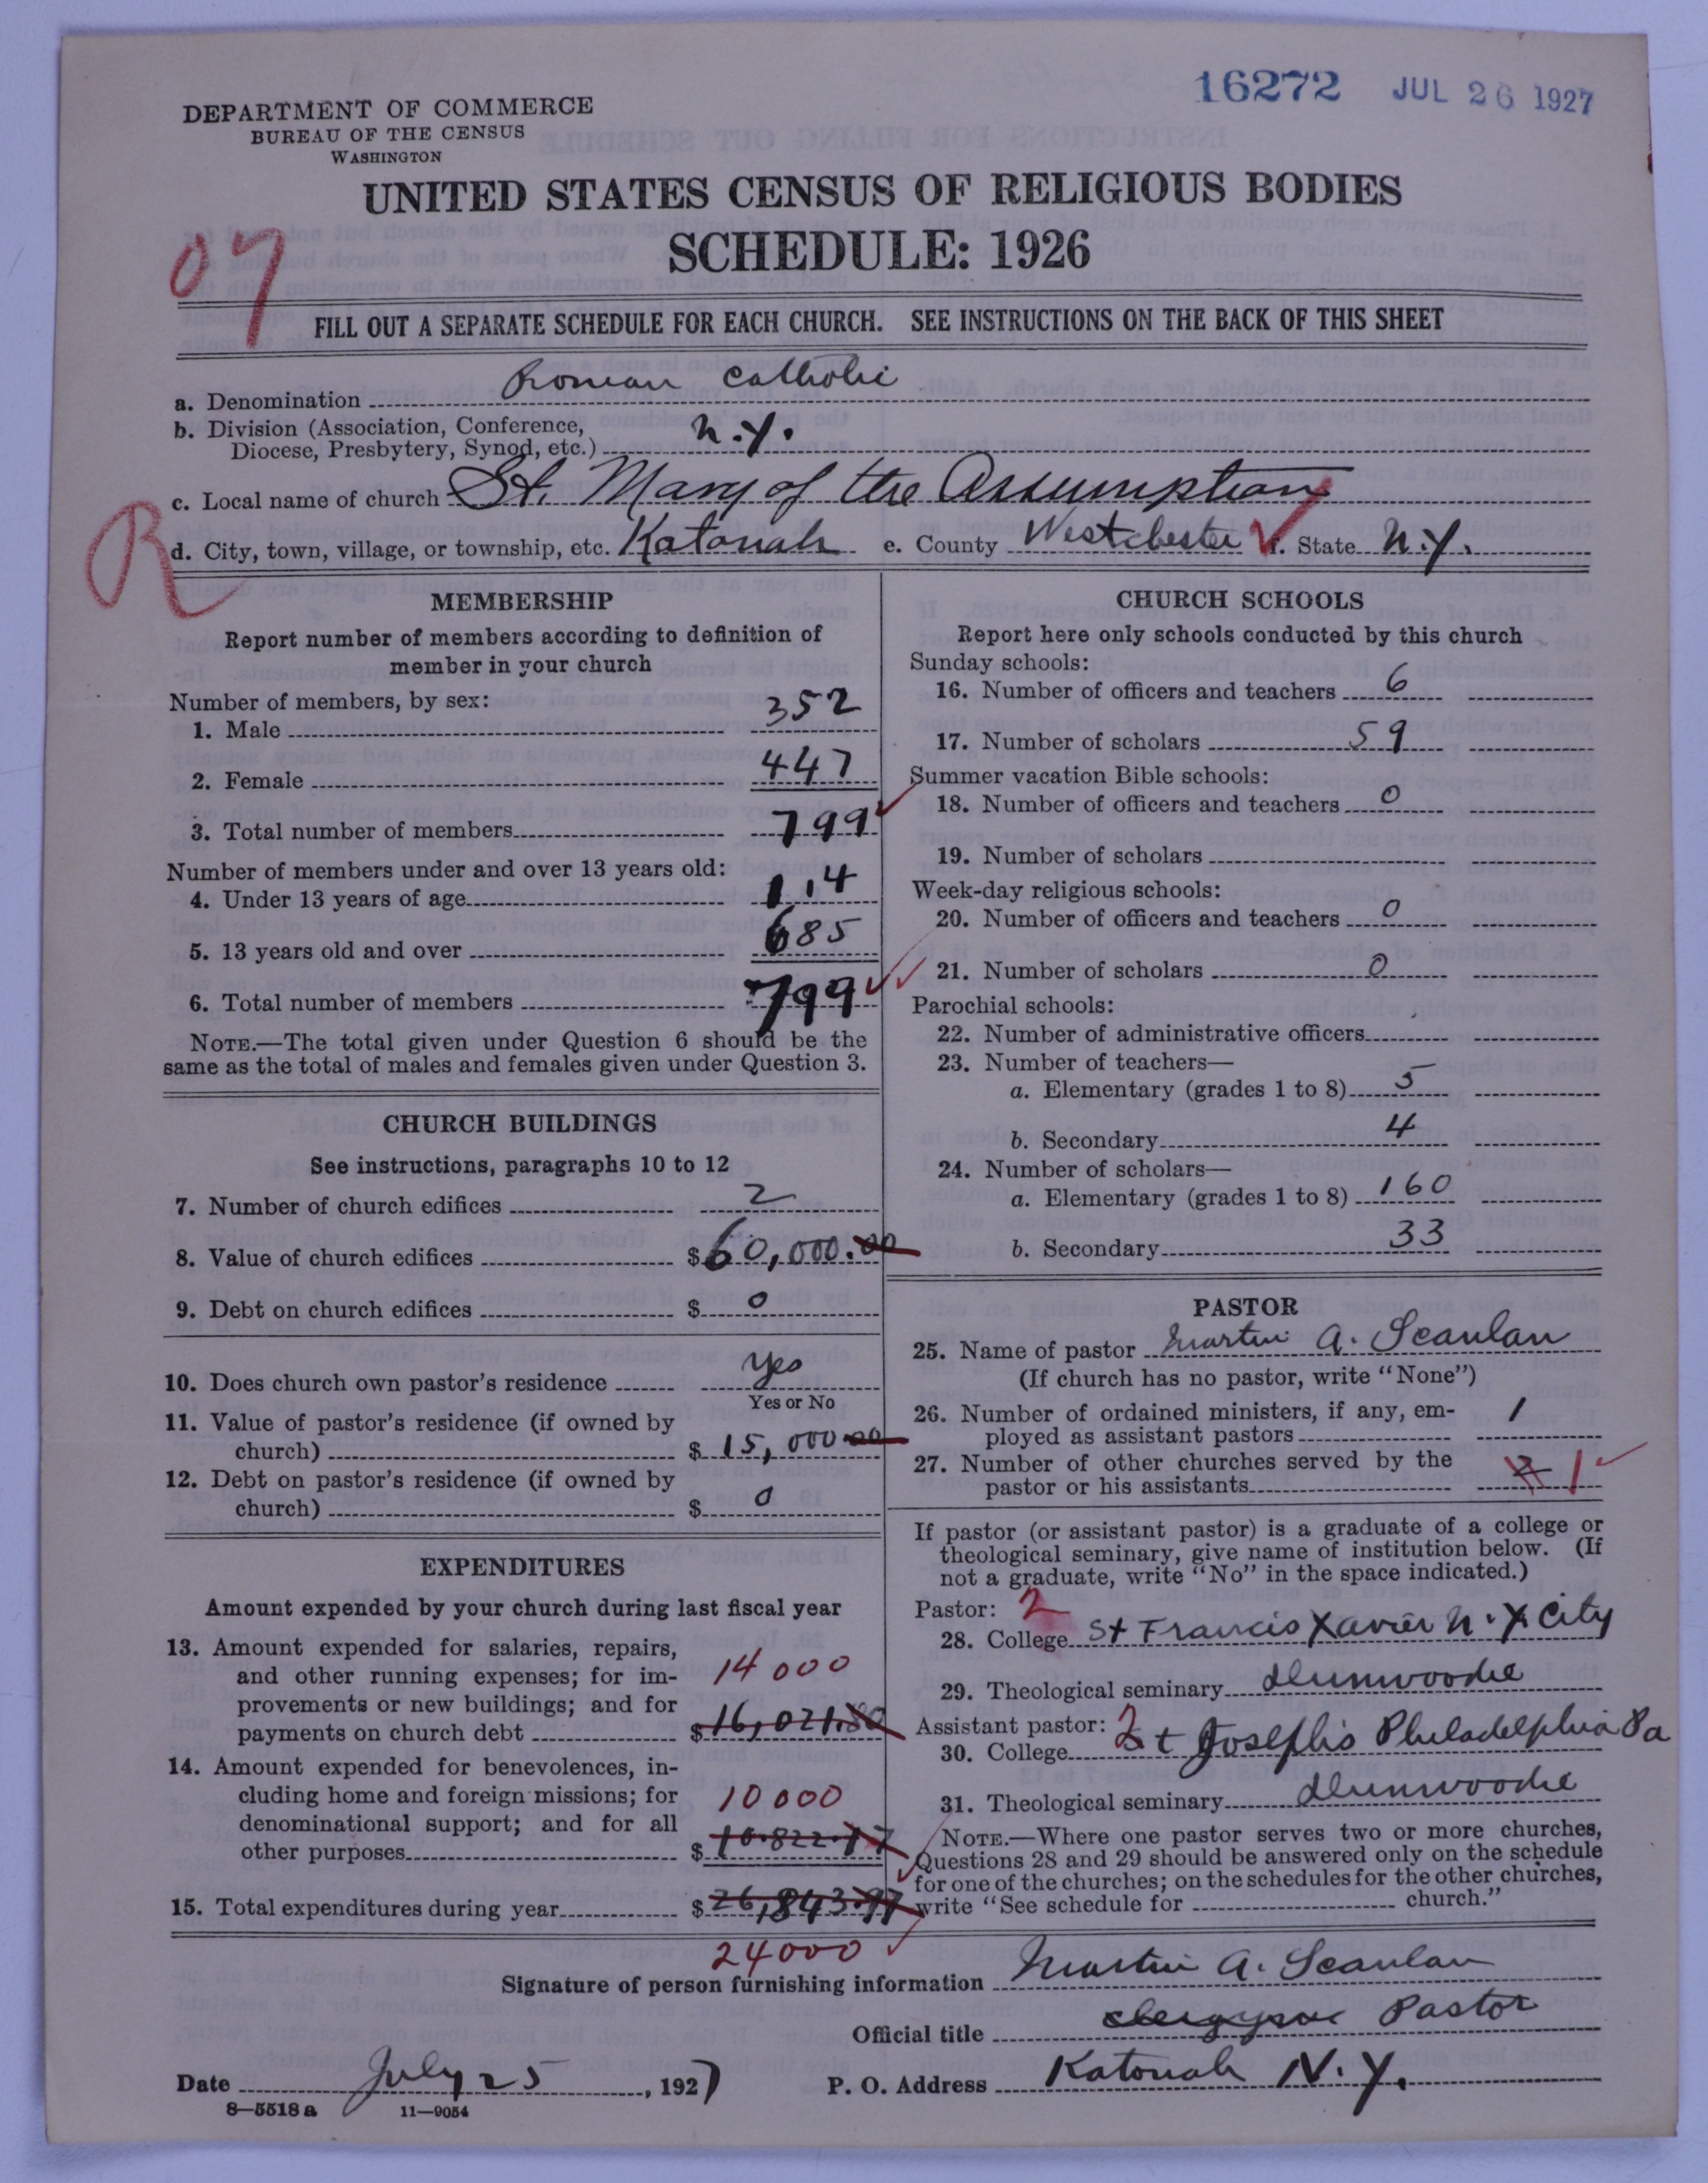 16272 JUL 26 1927
DEPARTMENT OF COMMERCE
BUREAU OF THE CENSUS
WASHINGTON
UNITED STATES CENSUS OF RELIGIOUS BODIES
SCHEDULE: 1926
07
FILL OUT A SEPARATE SCHEDULE FOR EACH CHURCH. SEE INSTRUCTIONS ON THE BACK OF THIS SHEET
a. Denomination Roman Catholic
b. Division (Association, Conference,
Diocese, Presbytery, Synod, etc.) N.Y.
c. Local name of church St. Mary of the Assumption
R
d. City, town, village, or township, etc. Katonah e. County Westchester f. State N.Y.
MEMBERSHIP
Report number of members according to definition of
member in your church
Number of members, by sex:
1. Male 352
2. Female 447
3. Total number of members 799
Number of members under and over 13 years old:
4. Under 13 years of age 114
5. 13 years old and over 685
6. Total number of members 799
NOTE.—The total given under Question 6 should be the
same as the total of males and females given under Question 3.
CHURCH BUILDINGS
See instructions, paragraphs 10 to 12
7. Number of church edifices 2
8. Value of church edifices $60,000.00
9. Debt on church edifices $ 0
10. Does church own pastor's residence yes
Yes or No
11. Value of pastor's residence (if owned by
church) $ 15,000.00
12. Debt on pastor's residence (if owned by
church) $ 0
EXPENDITURES
Amount expended by your church during last fiscal year
13. Amount expended for salaries, repairs,
and other running expenses; for im- 14000
provements or new buildings; and for
payments on church debt $16,021.80
14. Amount expended for benevolences, in-
cluding home and foreign missions; for 10000
denominational support; and for all
other purposes $10.822.17
15. Total expenditures during year $26,843.97
24000
CHURCH SCHOOLS
Report here only schools conducted by this church
Sunday schools:
16. Number of officers and teachers 6
17. Number of scholars 59
Summer vacation Bible schools:
18. Number of officers and teachers 0
19. Number of scholars
Week-day religious schools:
20. Number of officers and teachers 0
21. Number of scholars 0
Parochial schools:
22. Number of administrative officers
23. Number of teachers—
a. Elementary (grades 1 to 8) 5
b. Secondary 4
24. Number of scholars—
a. Elementary (grades 1 to 8) 160
b. Secondary 33
PASTOR
25. Name of pastor Martin A. Scanlan
(If church has no pastor, write "None")
26. Number of ordained ministers, if any, em-
ployed as assistant pastors 1
27. Number of other churches served by the
pastor or his assistants 2 1
If pastor (or assistant pastor) is a graduate of a college or
theological seminary, give name of institution below. (If
not a graduate, write "No" in the space indicated.)
Pastor: 2
28. College St Francis Xavier N.Y City
29. Theological seminary Dunwoodie
Assistant pastor: 2
30. College St Joseph's Philadelphia Pa
31. Theological seminary Dunwoodie
NOTE.—Where one pastor serves two or more churches,
Questions 28 and 29 should be answered only on the schedule
for one of the churches; on the schedules for the other churches,
write "See schedule for church."
Signature of person furnishing information Martin A. Scanlan
Official title Pastor
Date July 25, 1927 P. O. Address Katonah N.Y.
8—5518 a 11—9054